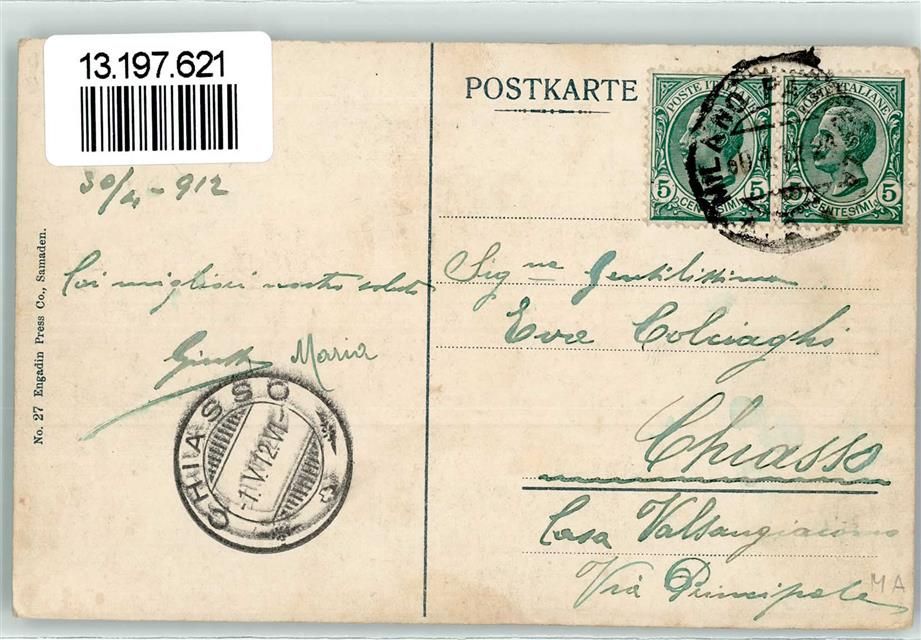 13.197.621
POSTKARTE
POSTE ITALIANE
5 CENTESIMI 5
POSTE ITALIANE
5 CENTESIMI 5
MILANO
30/4-912
Coi migliori nostri saluti
Maria
CHIASSO
-1.V.12.VI-
Sig.na Gentilissima
Eva Colciaghi
Chiasso
Casa Valsangiacomo
Via Principale
MA
No. 27 Engadin Press Co., Samaden.